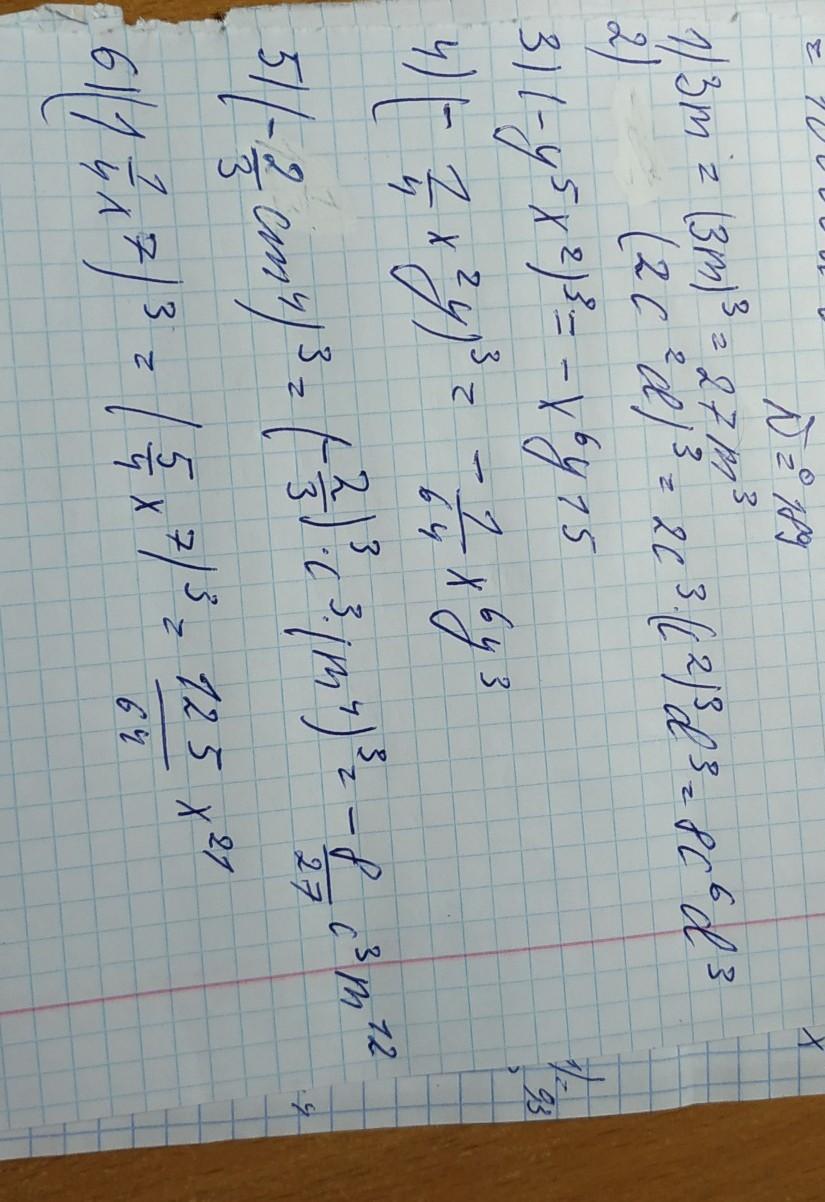 № 189
1) 3m = (3m)³ = 27m³
2) (2c²d)³ = 2c³·(c²)³d³ = 8c⁶d³
3) (-y⁵x²)³ = -x⁶y15
4) (-1/4 x²y)³ = -1/64 x⁶y³
5) (-2/3 cm⁴)³ = (-2/3)³·c³·(m⁴)³ = -8/27 c³m¹²
6) (1 1/4 x⁷)³ = (5/4 x⁷)³ = 125/64 x²¹